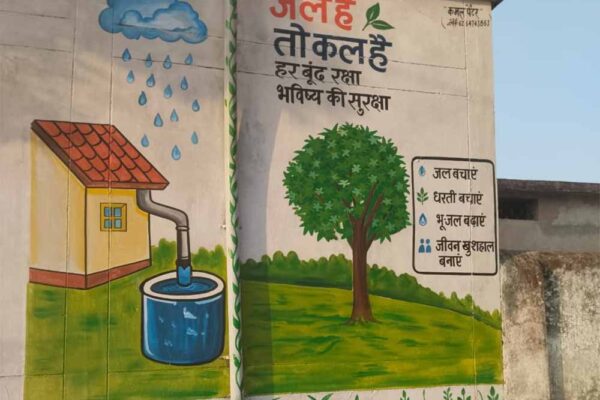 जल है
तो कल है
हर बूंद रक्षा
भविष्य की सुरक्षा
कमल पेंटर
जल बचाएं
धरती बचाएं
भूजल बढ़ाएं
जीवन खुशहाल
बनाएं